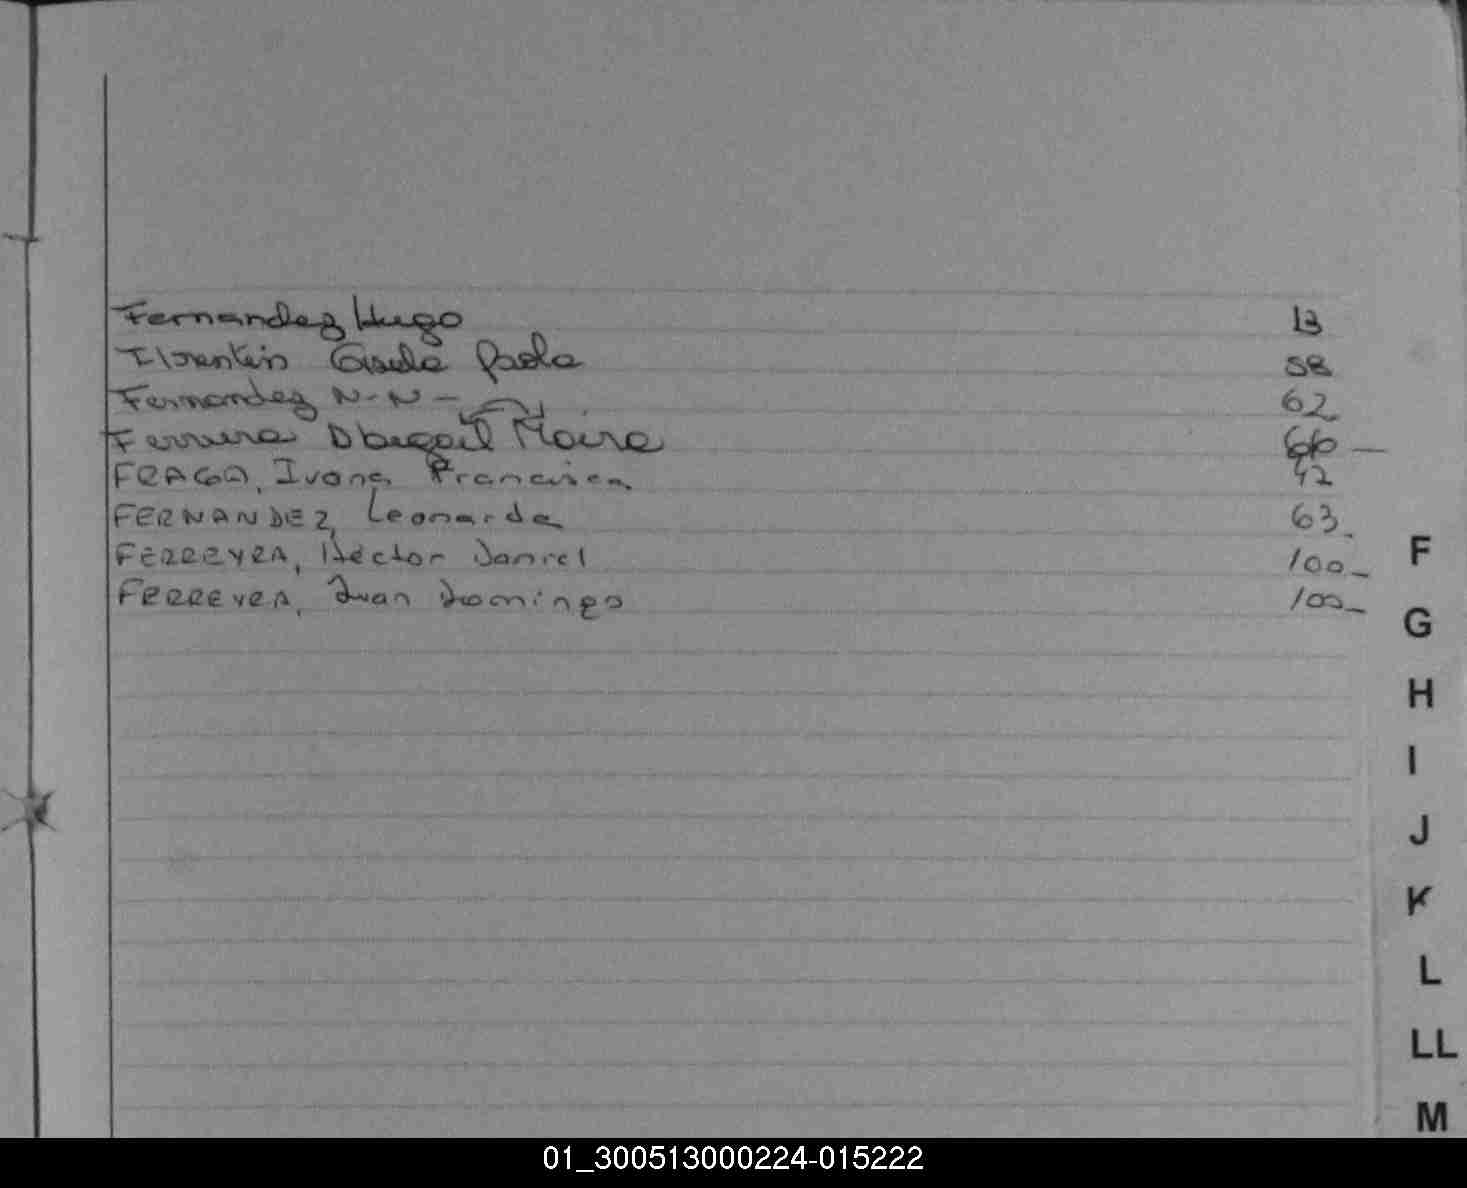 Fernandez Hugo 13
Florentin Gisela Paola 58
Fernandez N-N- 62
Ferreira Abigail Maira 66
FRAGA, Ivana Francisca 42
FERNANDEZ, Leonarda 63
FERREYRA, Hector Daniel 100
FERREYRA, Juan Domingo 100
F
G
H
I
J
K
L
LL
M
01_300513000224-015222